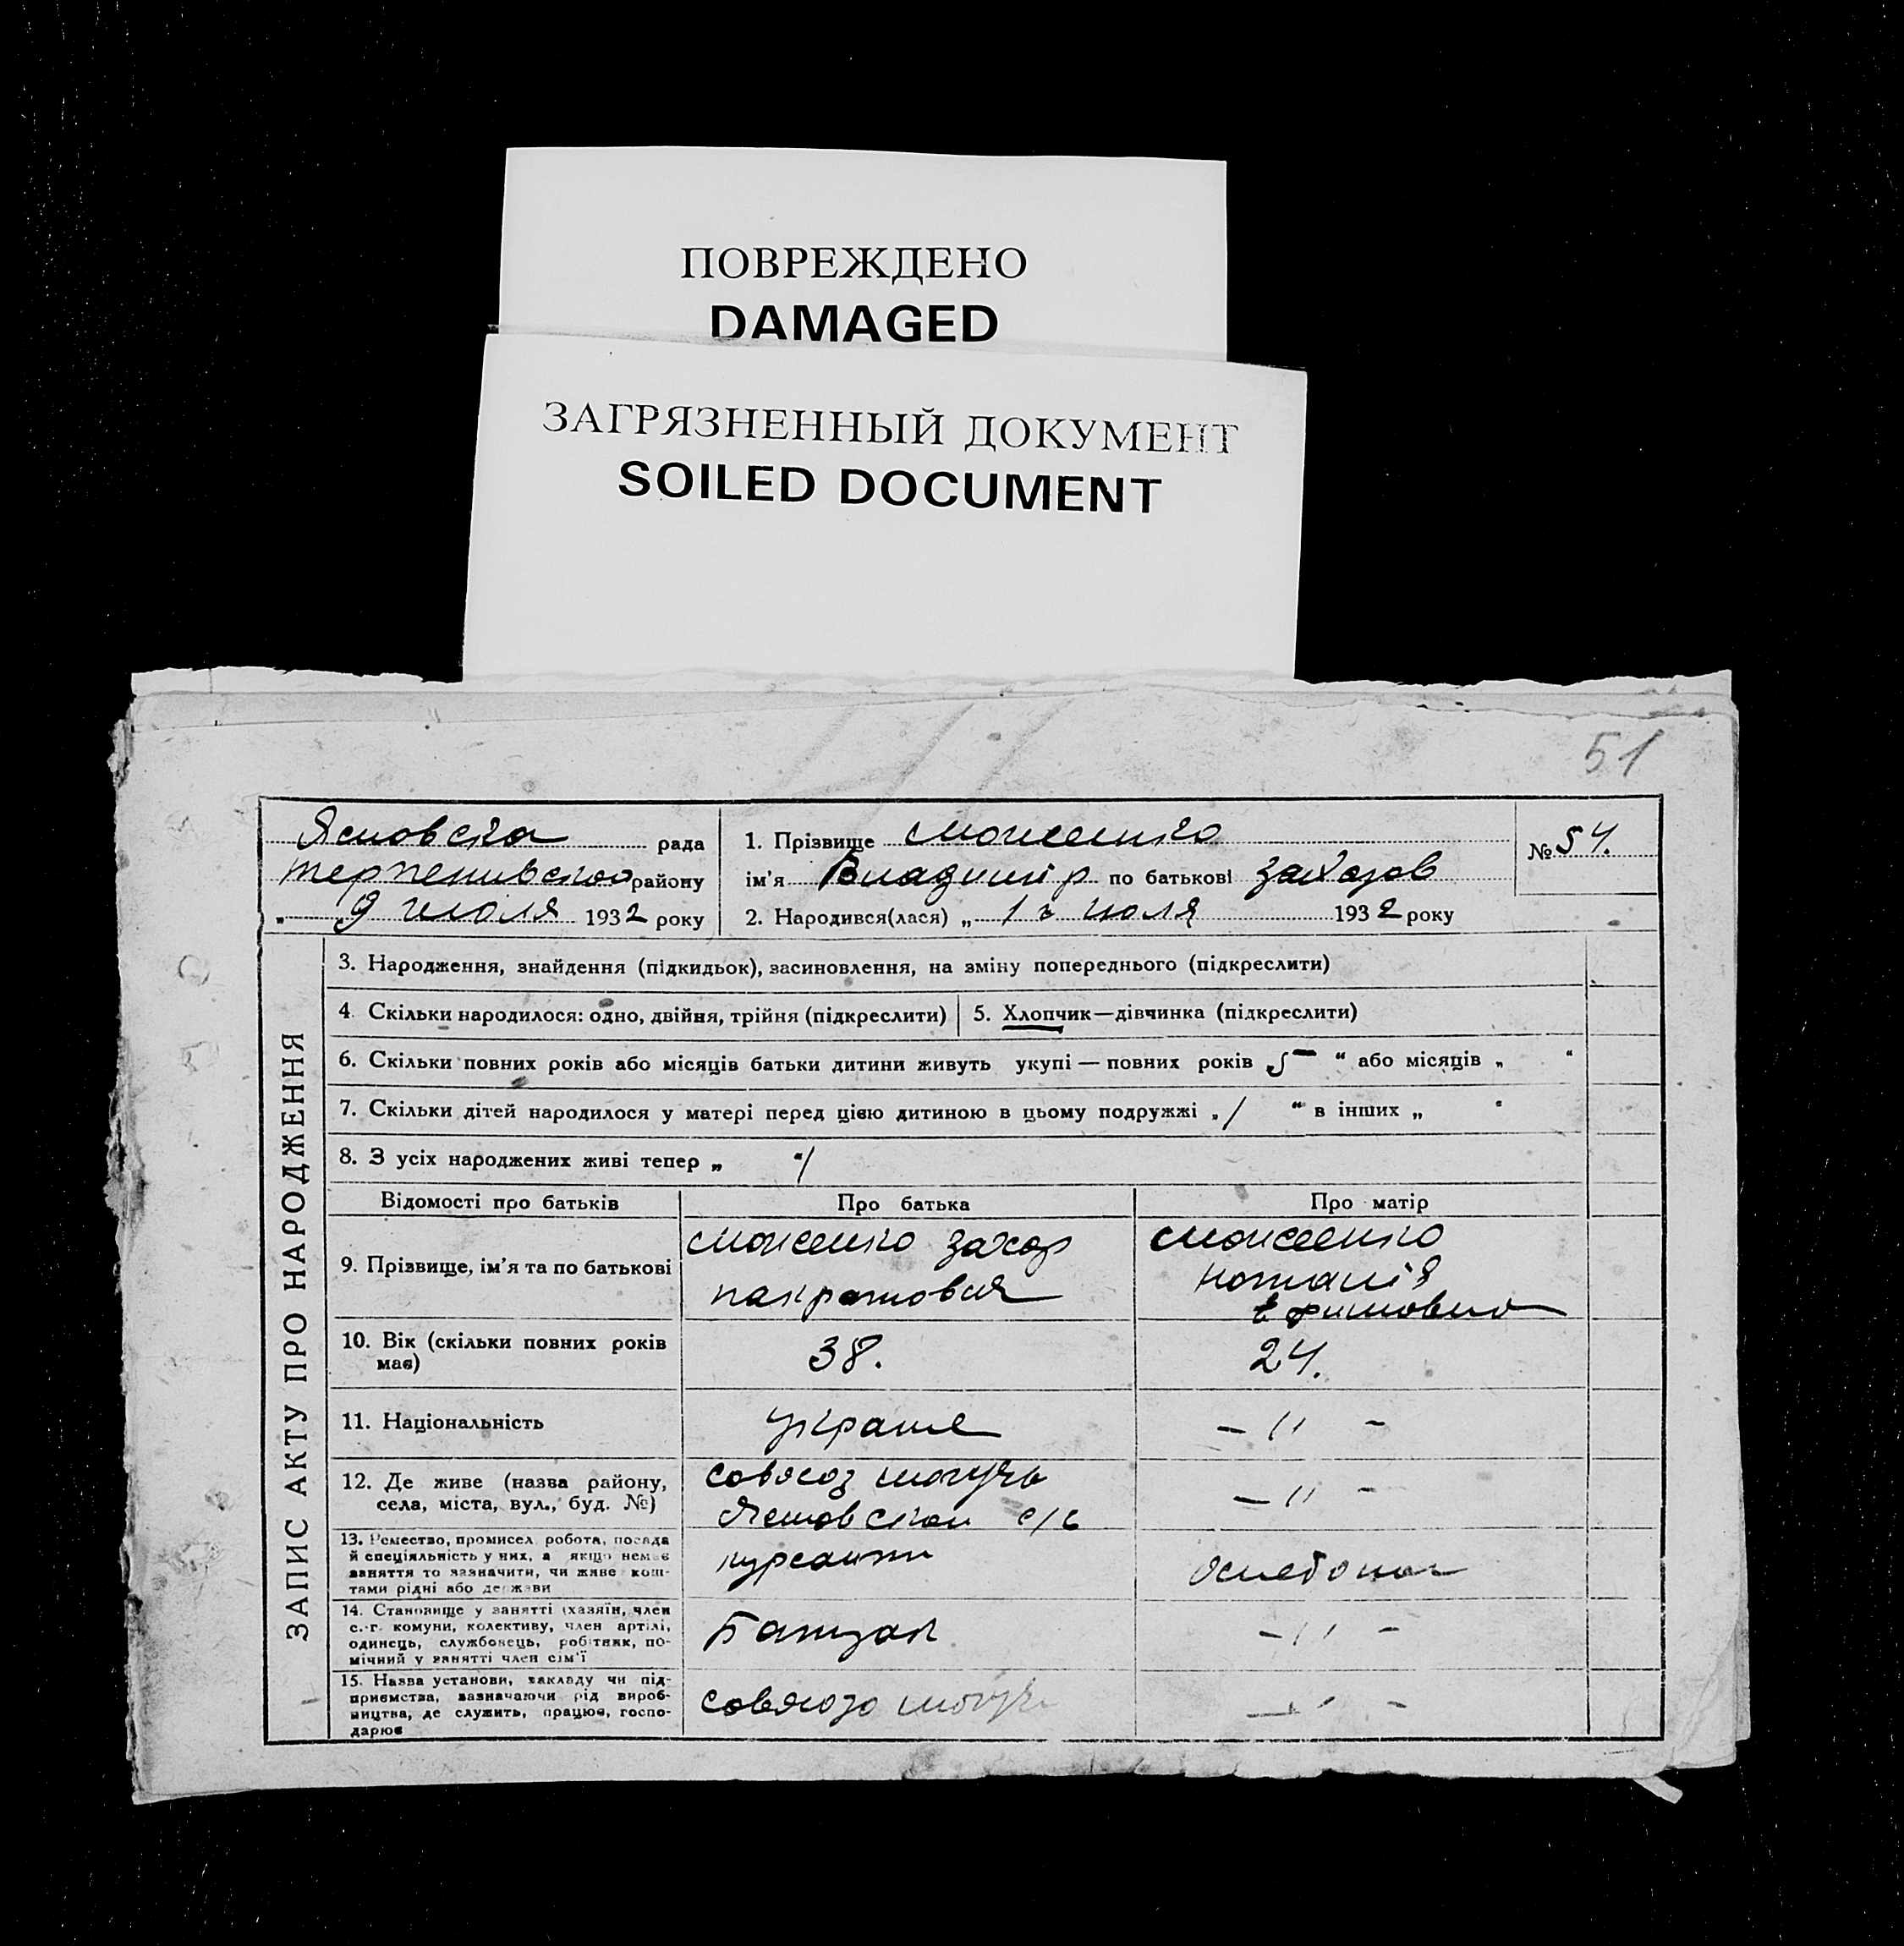 ПОВРЕЖДЕНО
DAMAGED
ЗАГРЯЗНЕННЫЙ ДОКУМЕНТ
SOILED DOCUMENT
51
ЗАПИС АКТУ ПРО НАРОДЖЕННЯ
рада
району
9 июля 1932 року
1. Прізвище
№ 54.
ім'я Владимір по батькові Захаров
2. Народився(лася) „ 1 июля 1932 року
3. Народження, знайдення (підкидьок), засиновлення, на зміну попереднього (підкреслити)
4. Скільки народилося: одно, двійня, трійня (підкреслити)
5. Хлопчик—дівчинка (підкреслити)
6. Скільки повних років або місяців батьки дитини живуть укупі — повних років 5 “ або місяців „ “
7. Скільки дітей народилося у матері перед цією дитиною в цьому подружжі „ 1 “ в інших „ “
8. З усіх народжених живі тепер „ “ 1
Відомості про батьків
Про батька
Про матір
9. Прізвище, ім'я та по батькові
захар
наталія
10. Вік (скільки повних років
має)
38.
24.
11. Національність
украине
— 〃 —
12. Де живе (назва району,
села, міста, вул., буд. №)
с/с
— 〃 —
13. Ремество, промисел, робота, посада
й спеціяльність у них, а якщо немає
заняття то зазначити, чи живе кош-
тами рідні або держави
14. Становище у занятті (хазяїн, член
с.-г. комуни, колективу, член артілі,
одинець, службовець, робітник, по-
мічний у занятті член сім'ї
Батрак
— 〃 —
15. Назва установи, закладу чи під-
приємства, зазначаючи рід вироб-
ництва, де служить, працює, госпо-
дарює
— 〃 —